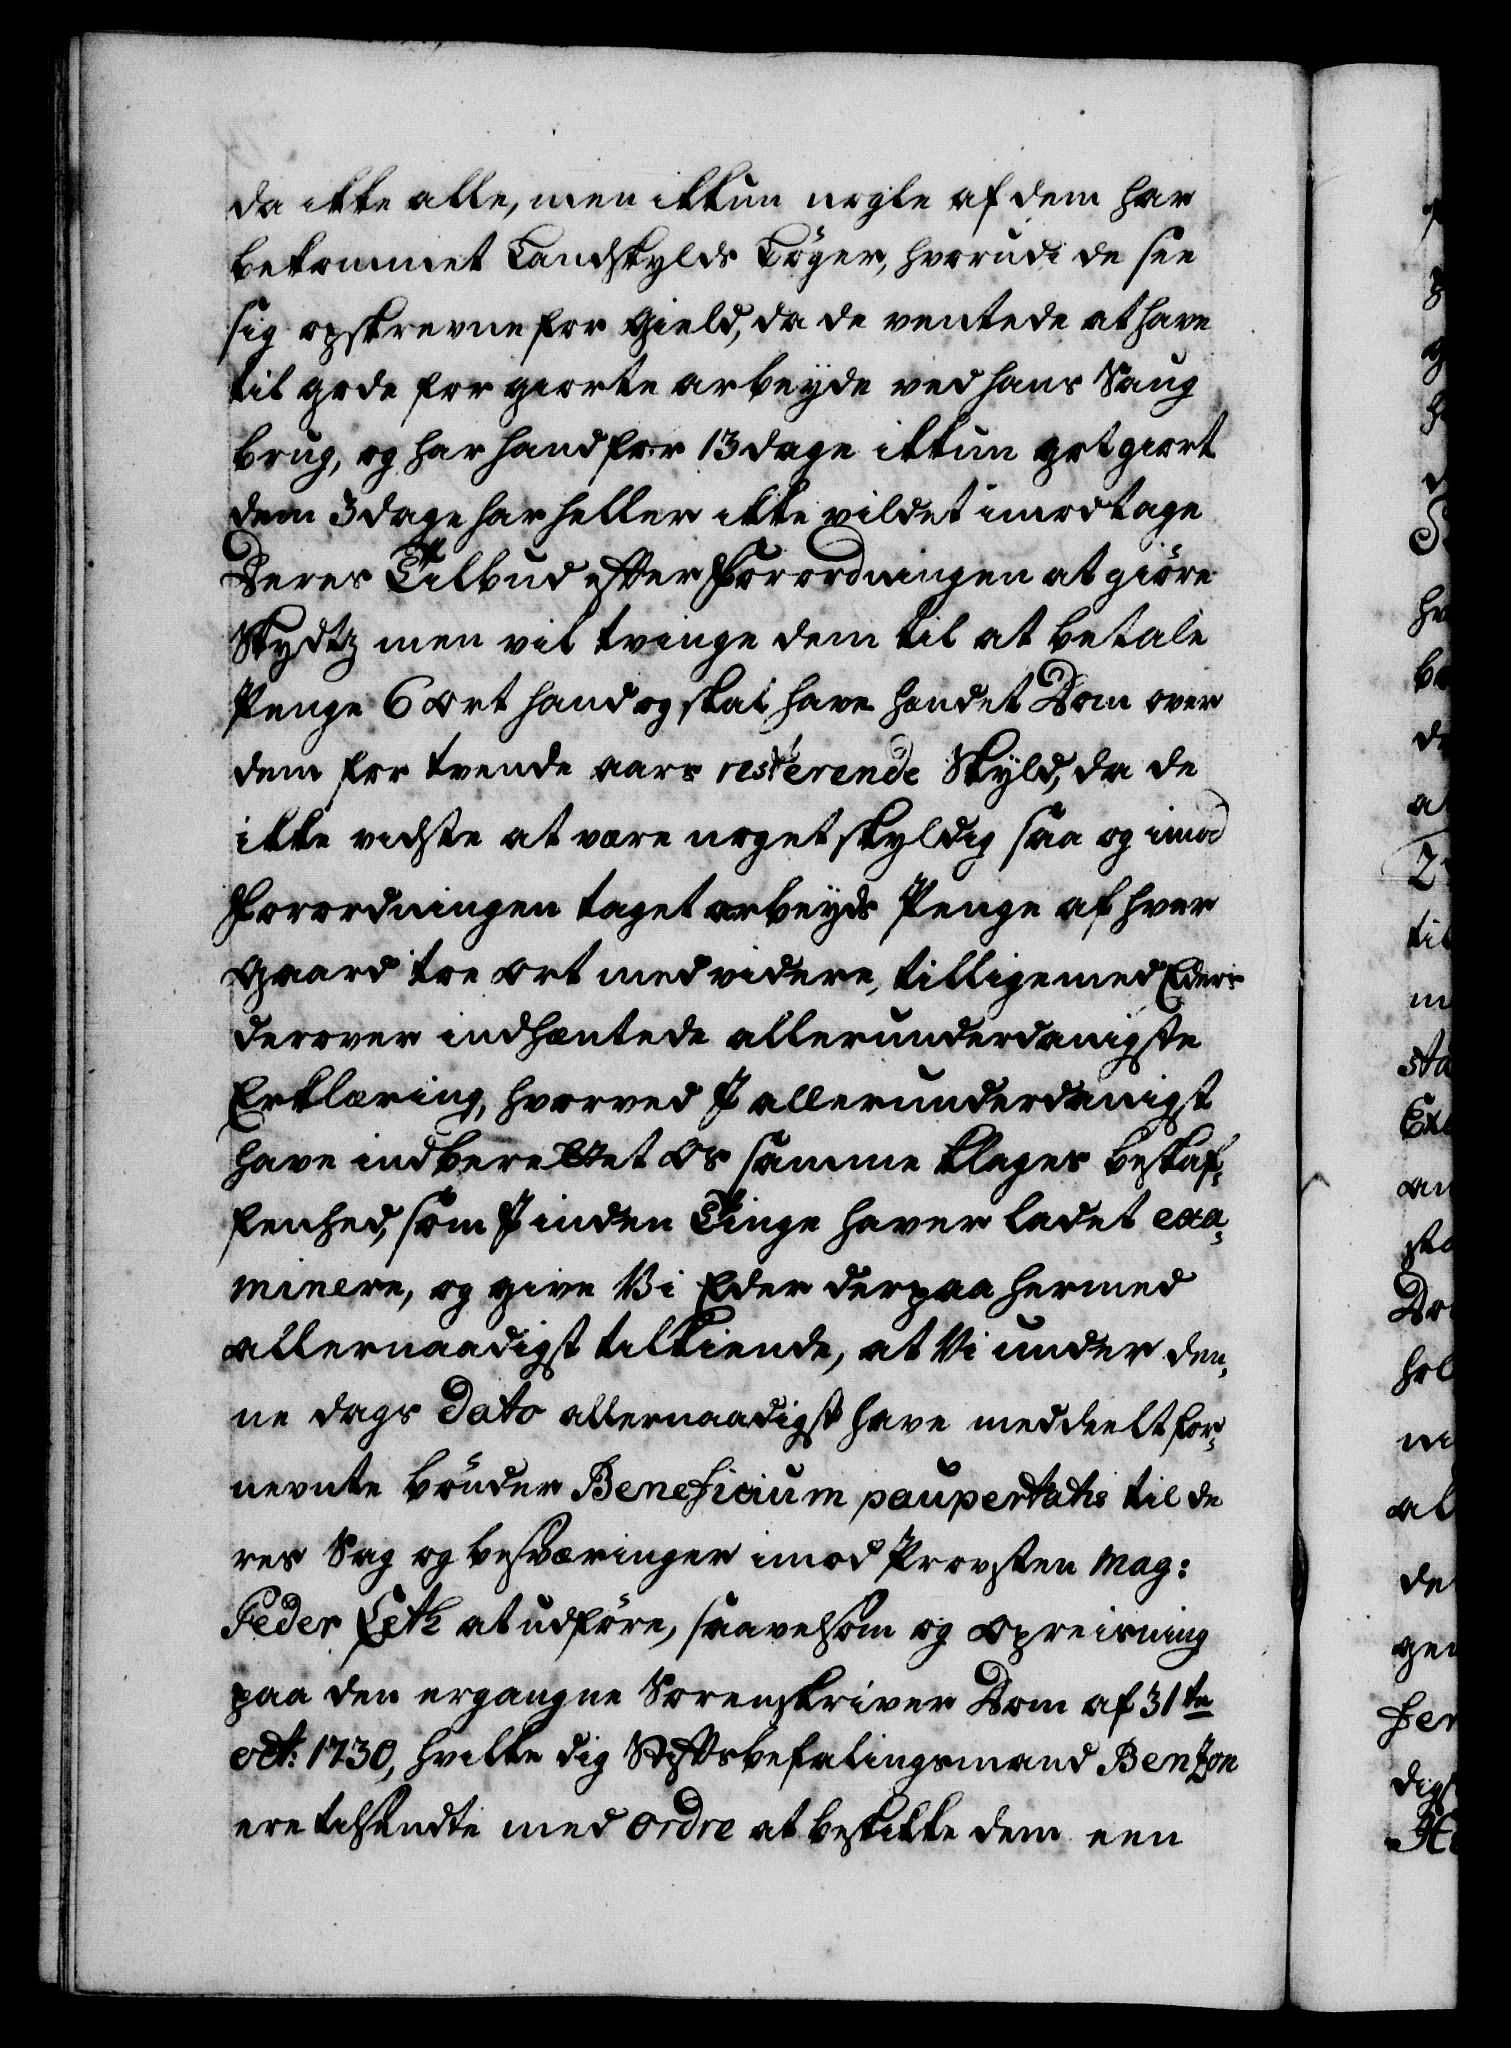 da ikke alle, men ikkun nogle af dem har
bekommet Landskylds Bøger, hvorudi de see
sig opskrevne for Gield, da de ventede at have
til gode for giorte arbeyde ved hans Saug
brug, og har hand for 13 dage ikkun got giort
dem 3 dage har heller ikke vildet imodtage
Deres Tilbud efter Forordningen at giöre
Skydtz men vil tvinge dem til at betale
Penge 6 Ort hand og skal have hendet Dom over
dem for tvende aars resterende Skyld, da de
ikke vidste at være noget skyldig saa og imod
Forordningen taget arbeyds Penge af hver
Gaard tre Ort med videre, tillige med Eders
derover indhæntede allerunderdanigste
Erklæring, hvorved I allerunderdanigst
have indberettet Os samme klages beskaf-
fenhed, som I inden Tinge haver ladet exa-
minere, og give Vi Eder derpaa hermed
allernaadigst tilkiende, at Vi under den-
ne dags Dato allernaadigst have meddeelt for-
nevnte bönder Beneficium paupertatis til de
res Sag og besværinger imod Provsten Mag:
Peder at udföre, saavelsom og Opreisning
paa den ergangne Sorenskriver Dom af 31te
oct: 1730, hvilke dig Stiftsbefalingsmand Benzon
ere tilsendte med Ordre at beskikke dem een